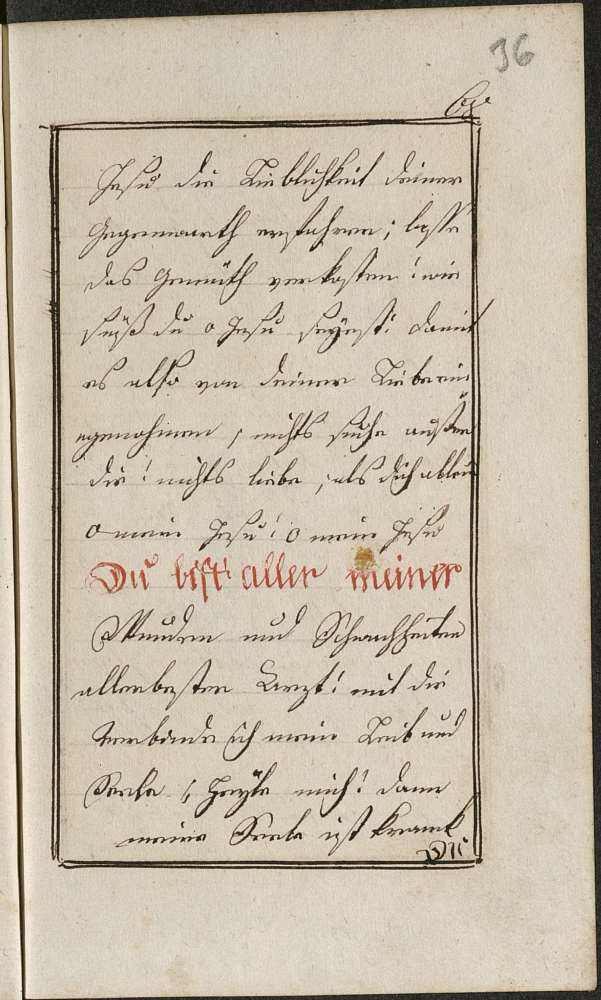 36
68
Jesu die Lieblichkeit deiner
Gegenwarth erfahren; lasse
das Gemüth verkosten! wie
süß du o Jesu seyest! damit
es also von deiner Liebe ein
genohmen, nichts suche ausser
dir! nichts liebe, als dich allein
o mein Jesu! o mein Jesu
Du bist aller meiner
Wunden und Schwachheiten
allerbester Arzt! mit dir
verbinde ich mein Leib und
Seele, heyle mich! dann
meine Seele ist kranck
Du